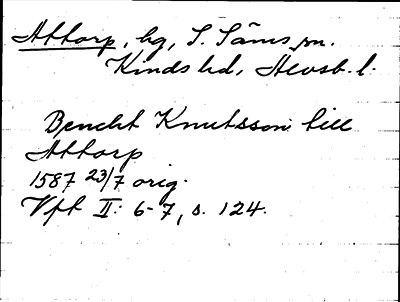 Attorp, hg, S. Säms sn.
Kinds hd, Älvsb. l.
Bencht Knutsson till
Attorp
1587 23/7 orig.
Vft II: 6-7, s. 124.